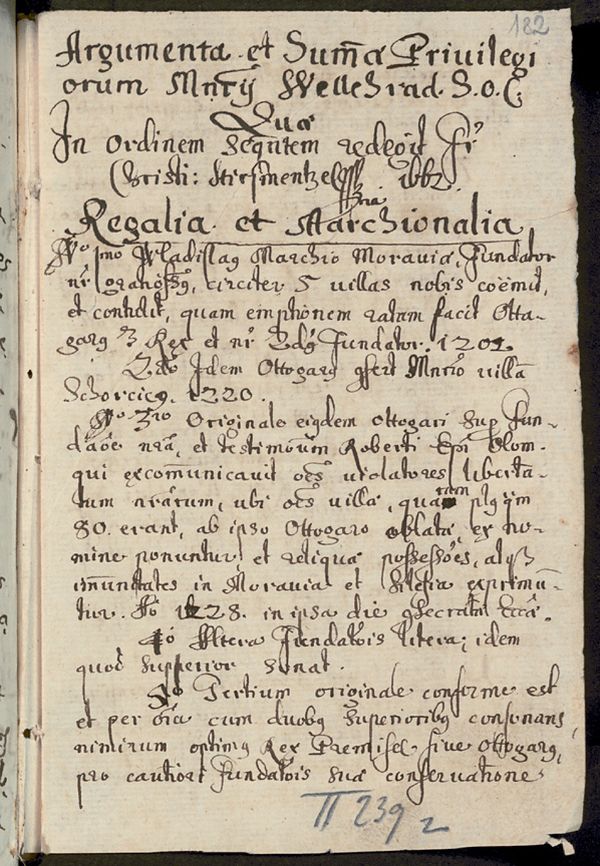 182
Argumenta et Sum̃a Privilegi
orum Mnrÿ Wellehrad S.O.C.
Quæ
In Ordinem Sequtem redegit Fr̃
Christi: Hirsmentzel
Regalia et Marchionalia
Wladislag Marchio Moraviæ, Fundator
nr̃, circiter 5 villas nobis coëmit,
et contulit, quam emptionem ratam facit Otto-
garg Rex et nr̃ 2dg Fundator. 1202
2do Idem Ottogarg gfert Mnrio villã
1220.
3tio Originale eigdem Ottogari sup Fun-
daõe nrã, et testimonium Roberti Epĩ Olom.
qui excom̃unicavit oẽs violatores liberta-
tum nrãrum, ubi oẽs villæ, quarum
80. erant, ab ipso Ottogaro oblatæ, ex no-
mine ponuntur et reliquæ possessões,
im̃unitates in Moravia et Silesia exprimũ-
tur. 1228. in ipsa die gsecratiõs Eccæ.
4o Altera Fundatoris litera; idem
quod superior sonat.
5o Tertium originale conforme est
et per oĩa cum duobg superioribg consonans
nimirum optimg Rex Premisel sive Ottogarg,
pro cautiori Fundatoris suæ conservatione
II 239 2